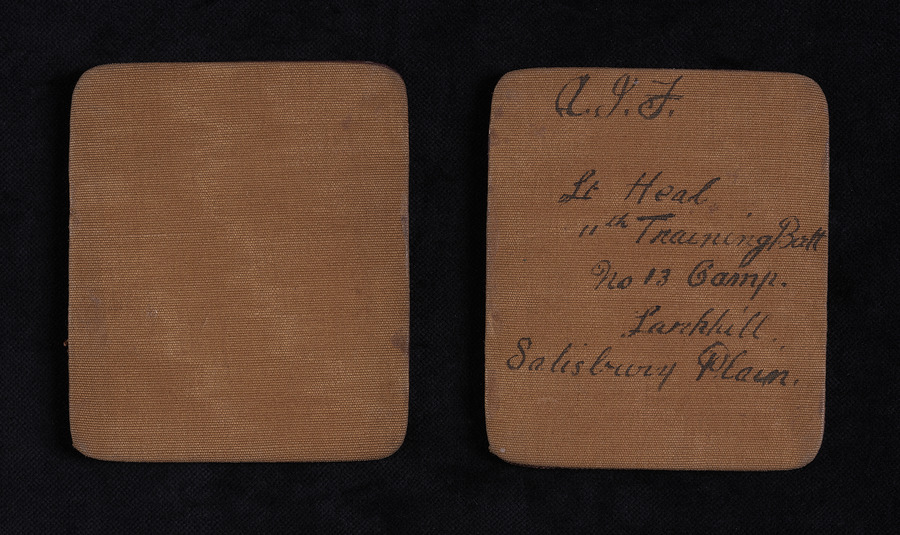 A.I.F.
Lt Heal
11th Training Batt
No 13 Camp.
Larkhill.
Salisbury Plain.